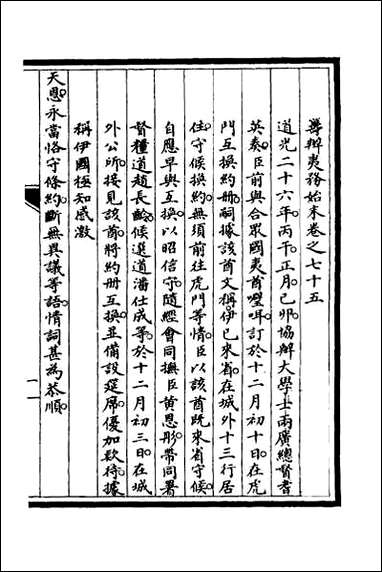 籌辦夷務始末卷之七十五
道光二十六年丙午正月己卯協辦大學士兩廣總督耆
英奏臣前與合眾國夷酋㘕咡訂於十二月初十日在虎
門互換約冊嗣據該酋文稱伊已來省在城外十三行居
住守候換約無須前往虎門等情臣以該酋既來省守候
自應早與互換以昭信守隨經會同撫臣黃恩彤帶同署
督糧道趙長齡候選道潘仕成等於十二月初三日在城
外公所接見該酋將約冊互換並備設筵席優加款待據
稱伊國極知感激
天恩永當恪守條約斷無異議等語情詞甚為恭順
一